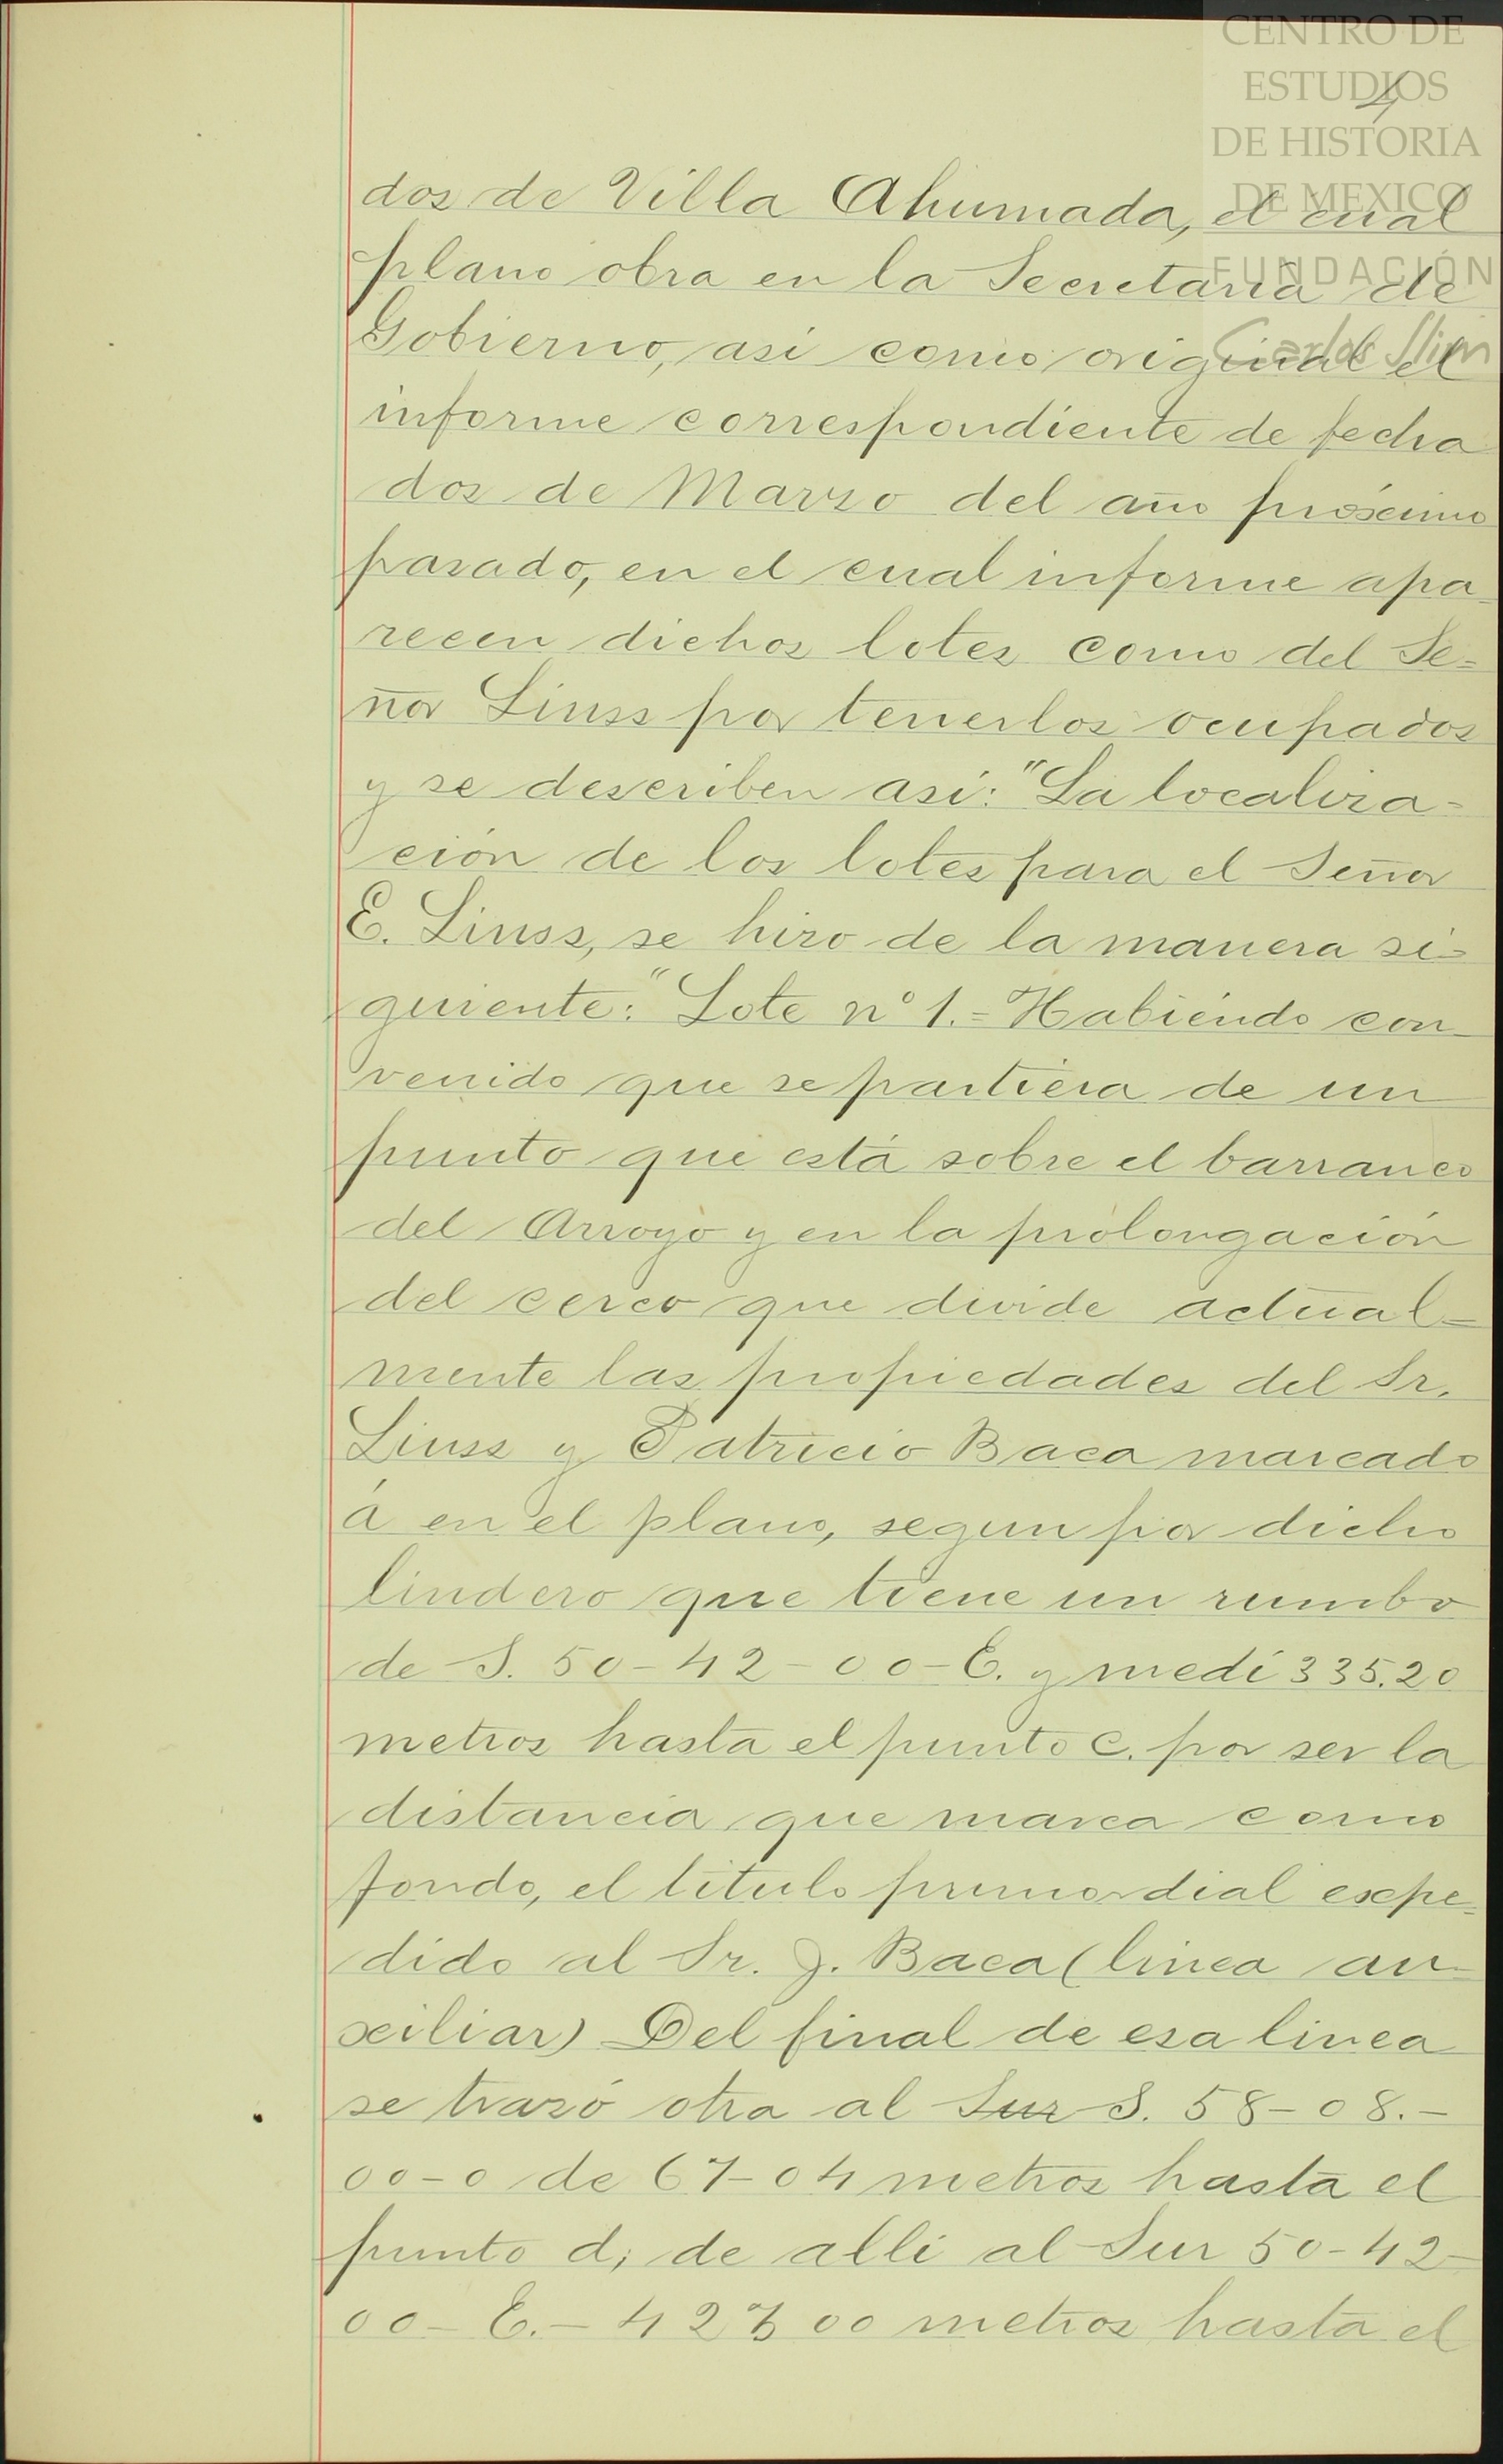 CENTRO DE
ESTUDIOS
DE HISTORIA
DE MEXICO
FUNDACIÓN
Carlos Slim
4
dos de Villa Ahumada, el cual
plano obra en la Secretaria de
Gobierno, asi como original el
informe correspondiente de fecha
dos de Marzo del año próximo
pasado, en el cual informe apa-
recen dichos lotes como del Se=
ñor Linss por tenerlos ocupados
y se describen asi: "La localiza=
ción de los lotes para el Señor
E. Linss, se hizo de la manera si=
guiente: "Lote nº 1.= Habiendo con-
venido que se partiera de un
punto que está sobre el barranco
del Arroyo y en la prolongación
del cerco que divide actual=
mente las propiedades del Sr.
Linss y Patricio Baca marcado
á en el plano, segun por dicho
lindero que tiene un rumbo
de S. 50-42-00-E. y medí 335.20
metros hasta el punto C. por ser la
distancia que marca como
fondo, el titulo primordial expe=
dido al Sr. J. Baca (linea au-
xiliar) Del final de esa linea
se trazó otra al Sur S. 58-08.-
00-0 de 67-04 metros hasta el
punto d; de alli al Sur 50-42-
00-E.- 42 00 metros hasta el